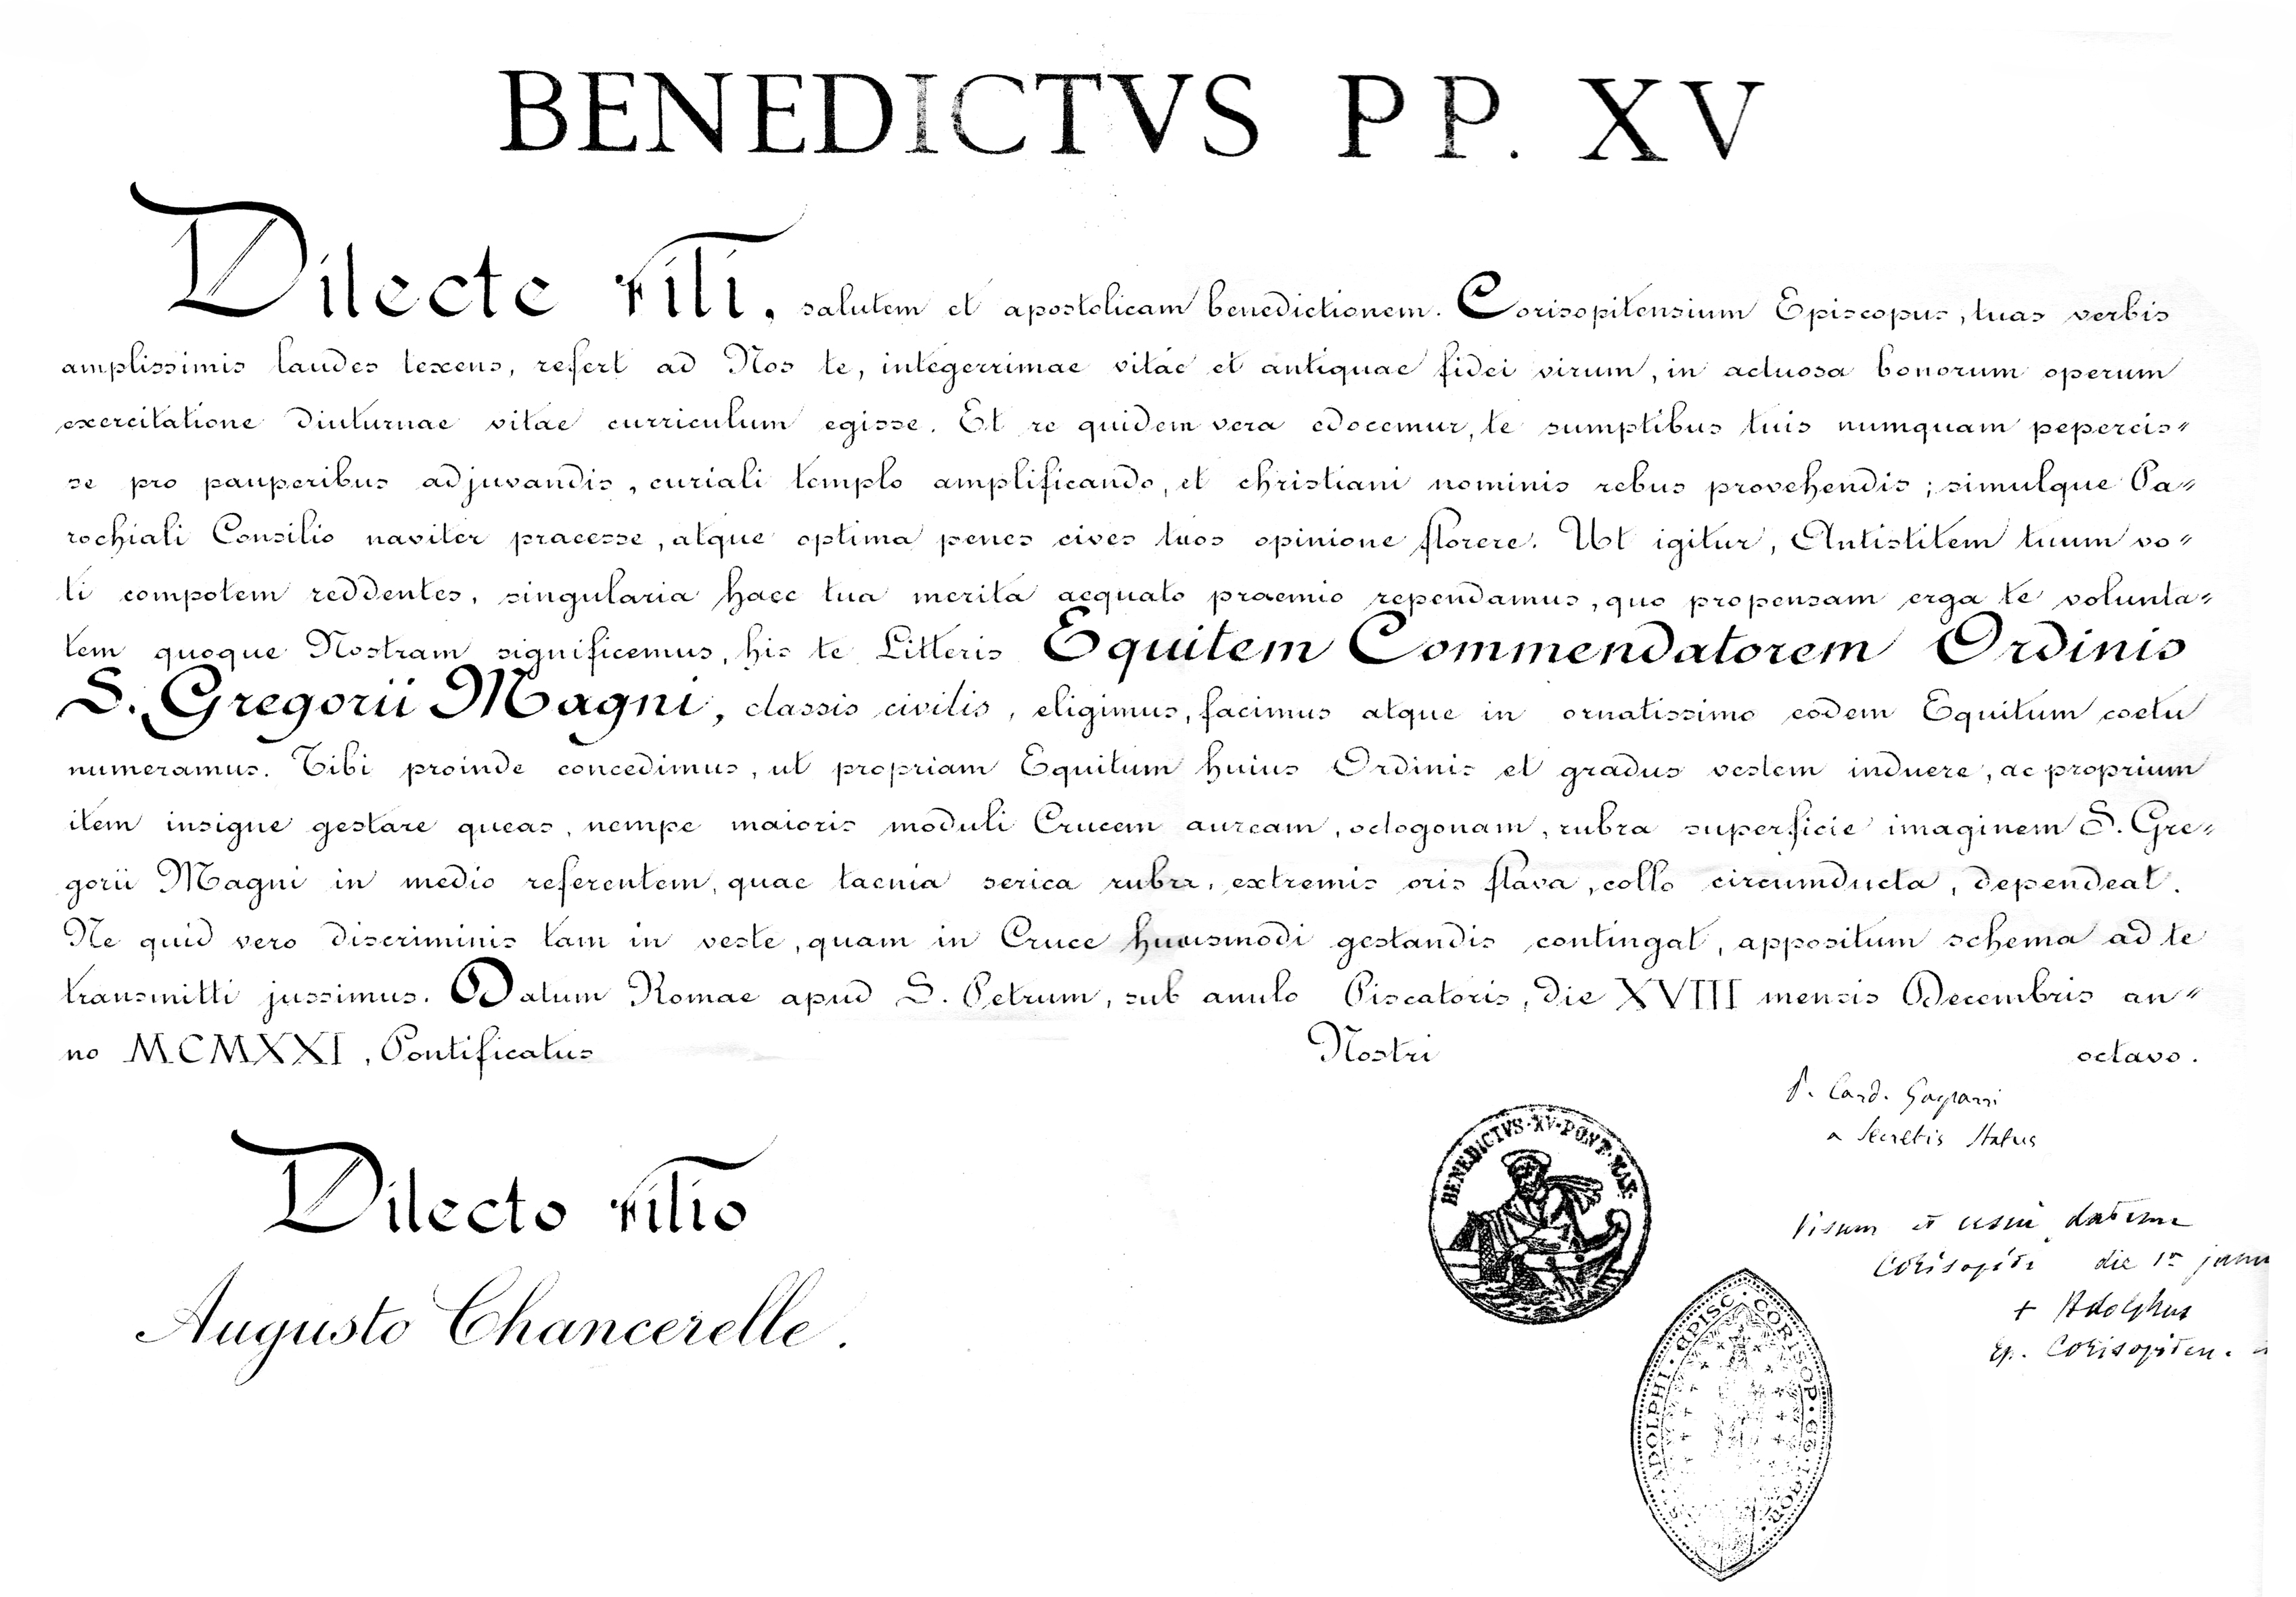 BENEDICTVS PP. XV
Dilecte Fili, salutem et apostolicam benedictionem. Corisopitensium Episcopus, tuas verbis
amplissimis laudes texens, refert ad Nos te, integerrimae vitae et antiquae fidei virum, in actuosa bonorum operum
exercitatione diuturnae vitae curriculum egisse. Et re quidem vera edocemur, te sumptibus tuis numquam pepercis-
se pro pauperibus adjuvandis, curiali templo amplificando, et christiani nominis rebus provehendis; simulque Pa-
rochiali Consilio naviter praeesse, atque optima penes cives tuos opinione florere. Ut igitur, Antistitem tuum vo-
ti compotem reddentes, singularia haec tua merita aequato praemio rependamus, quo propensam erga te volunta-
tem quoque Nostram significemus, his te Litteris Equitem Commendatorem Ordinis
S. Gregorii Magni, classis civilis, eligimus, facimus atque in ornatissimo eodem Equitum coetu
numeramus. Tibi proinde concedimus, ut propriam Equitum huius Ordinis et gradus vestem induere, ac proprium
item insigne gestare queas, nempe maioris moduli Crucem auream, octogonam, rubra superficie imaginem S. Gre-
gorii Magni in medio referentem, quae taenia serica rubra, extremis oris flava, collo circumducta, dependeat.
Ne quid vero discriminis tam in veste, quam in Cruce huiusmodi gestandis contingat, appositum schema ad te
transmitti jussimus. Datum Romae apud S. Petrum, sub anulo Piscatoris, die XVIII mensis Decembris an-
no MCMXXI, Pontificatus Nostri octavo.
P. Card. Gasparri
a Secretis Status
Dilecto Filio
Augusto Chancerelle.
BENEDICTVS·XV·PONT·MAX·
Visum et
Corisopiti die 1a
+ Adolphus
ep. Corisopiten.
ADOLPHI·EPISC·CORISOP·